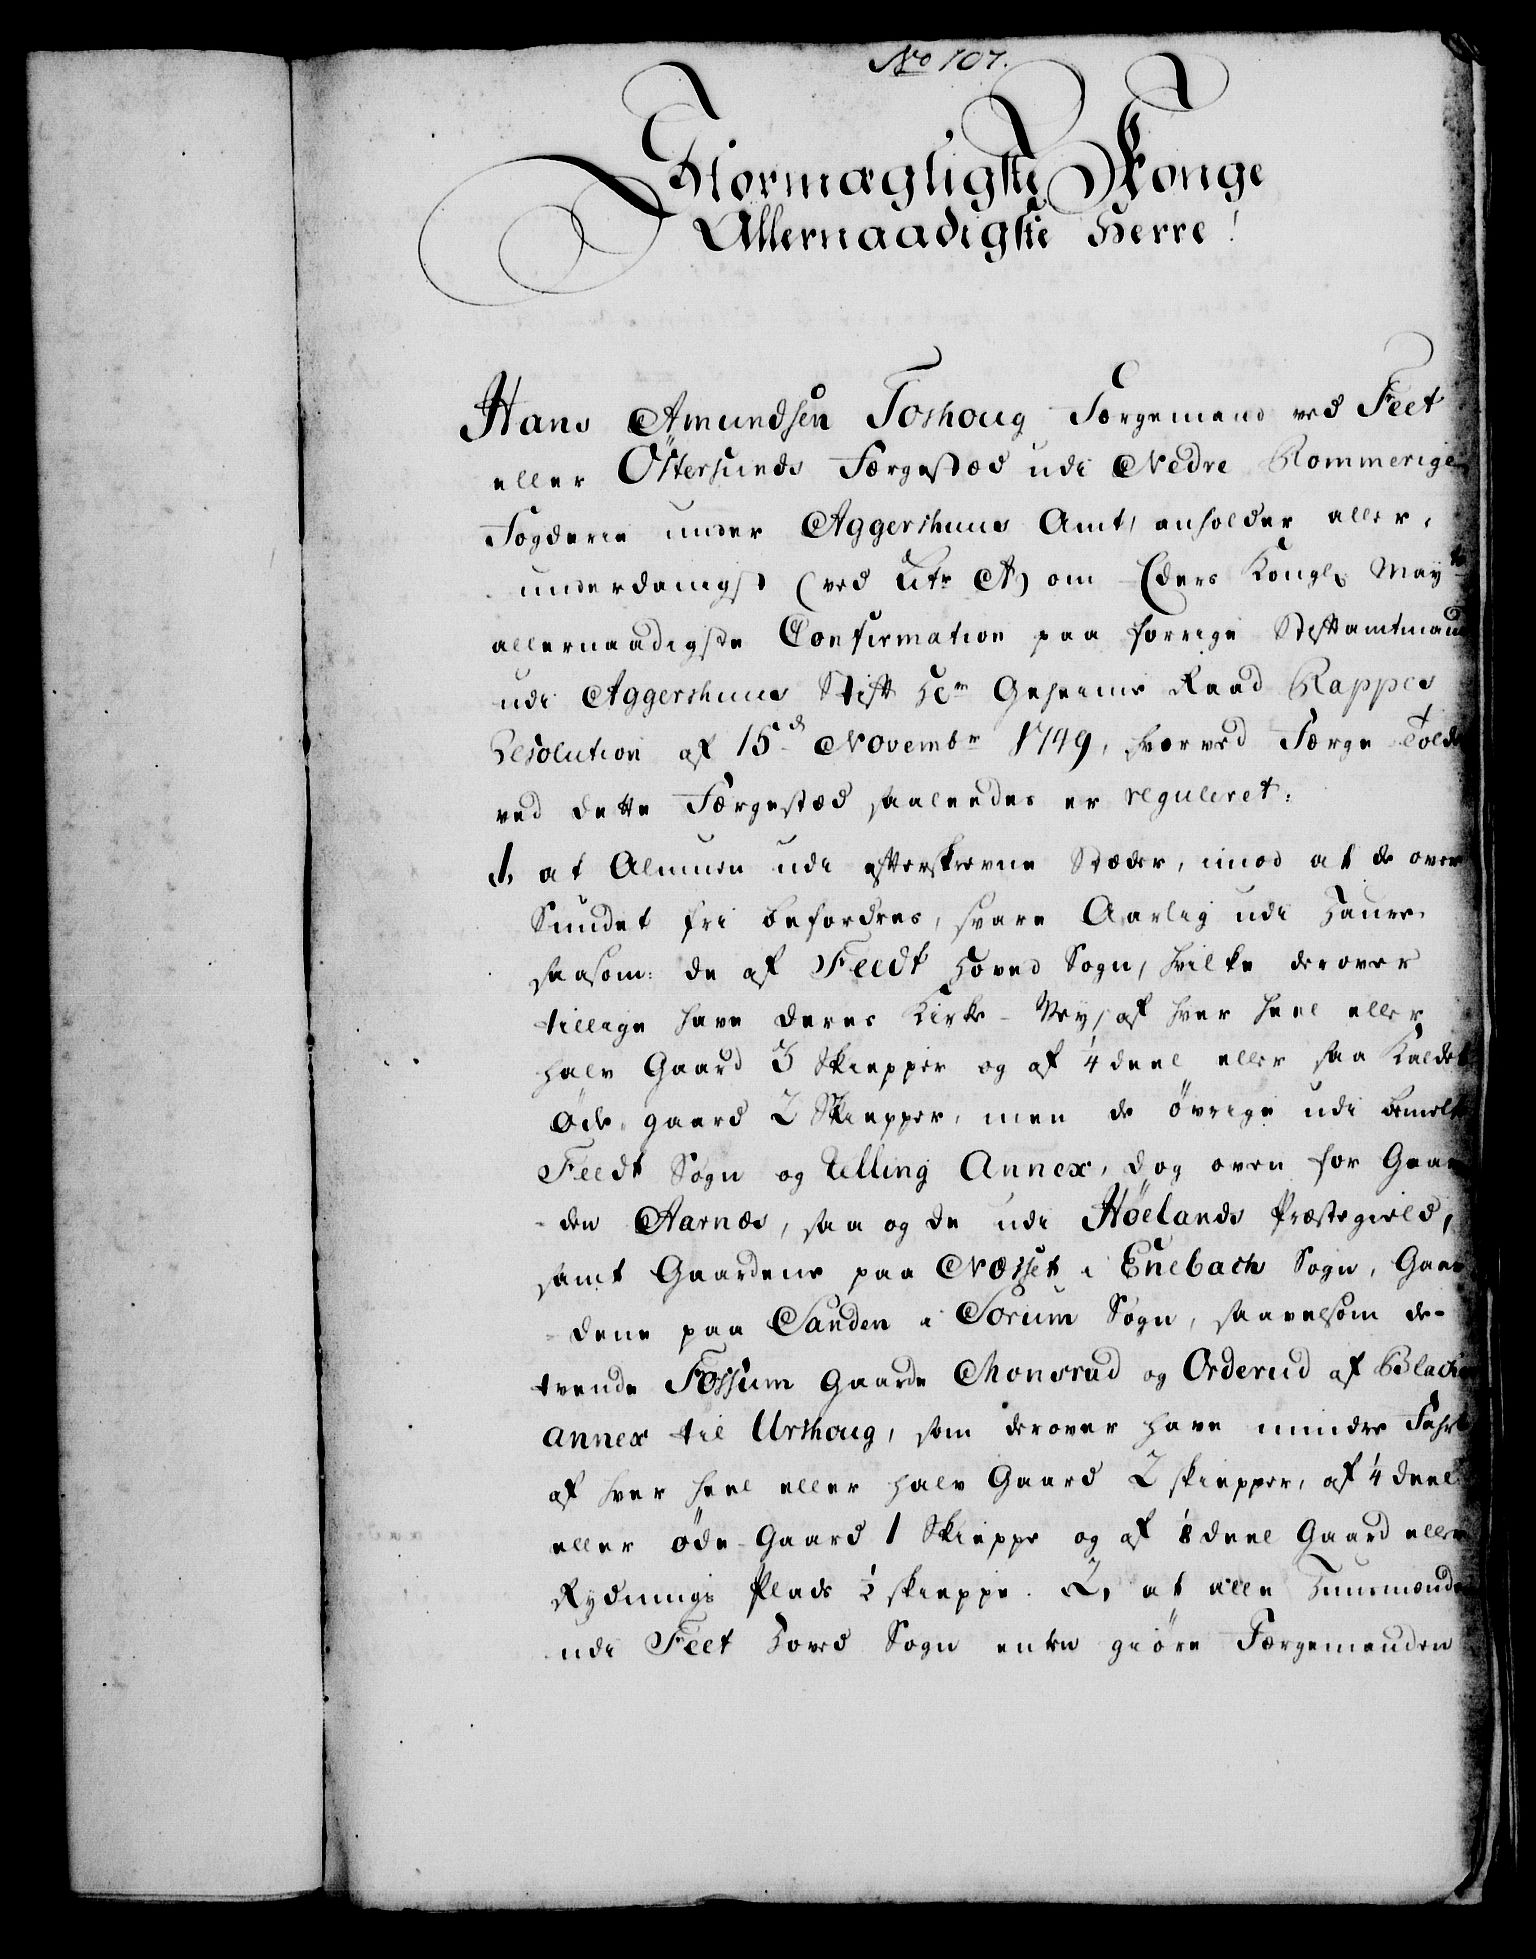 No 107.
Stormægtigste Konge
Allernaadigste Herre!
Hans Amundsen Toshoug Færgemand ved Feet
eller Östersunds Færgestæd udi Nedre Rommerige
Fogderie under Aggershuus Amt, anholder aller-
underdanigst (ved Litr A) om Eders Kongl. Mayts
allernaadigste Confirmation paa forrige Stiftamtmand
udi Aggershuus Stift Hr Geheime Raad Rappes
Resolution af 15d Novembr 1749, hvorved Færge Told
ved dette Færgestæd saaleedes er reguleret:
1, at Almuen udi efterskrevne Stæder, imod at de over
Sundet fri befordres, svare Aarlig udi Haure,
saasom: de af Feedt Hoved Sogn, hvilke derover
tillige have deres Kirke-Vey, af hver heel eller
halv Gaard 3 Skiepper og af 1/4 deel eller saa kaldet
Øde-gaard 2 Skiepper, men de övrige udi bemelte
Feedt Sogn og Uelling Annex, dog oven for Gaar-
-den Aarnæs, saa og de udi Höelands Præstegield,
samt Gaardene paa Næsset i Enebach Sogn, Gaar-
-dene paa Sanden i Sorum Sogn, saavelsom de-
tvende Fossum Gaarde Monsrud og Orderud af Blachier
annex til Urshoug, som derover have mindre Fahrt
af hver heel eller halv Gaard 2 skiepper, af 1/4 deel
eller øde-Gaard 1 Skieppe og af 1/8 deel Gaard eller
Rydnings Plads 1/2 skieppe. 2, at alle Huusmænd
udi Feet Hoved Sogn enten giöre Færgemanden